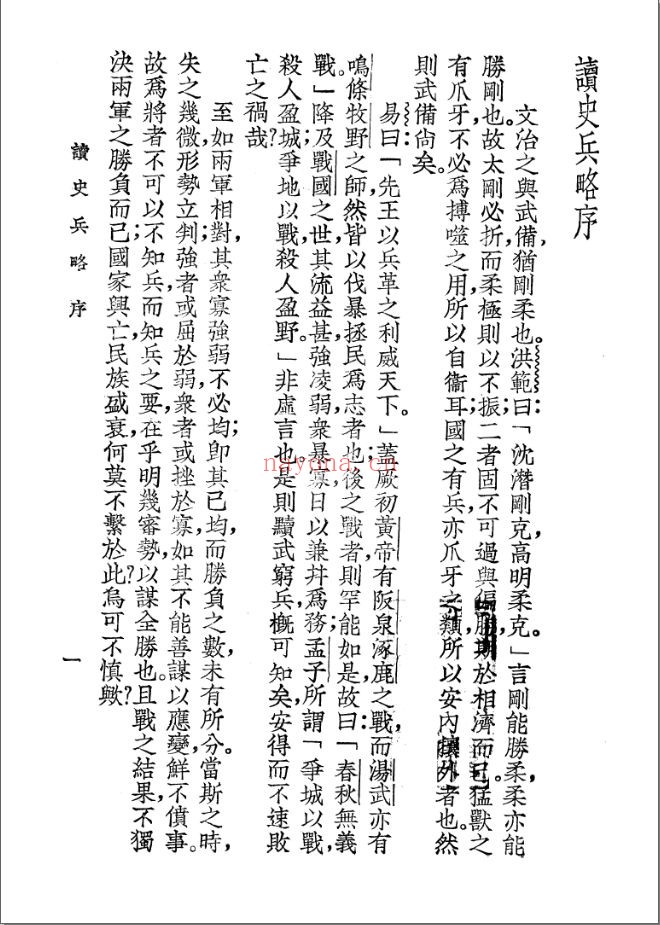 讀史兵略序
文治之與武備，猶剛柔也。洪範曰：「沈潛剛克，高明柔克。」言剛能勝柔，柔亦能
勝剛也。故太剛必折，而柔極則以不振；二者固不可過與偏勝，期於相濟而已。猛獸之
有爪牙，不必爲搏噬之用，所以自衞耳；國之有兵，亦爪牙之類，所以安內攘外者也。然
則武備尚矣。
易曰：「先王以兵革之利威天下。」蓋厥初黃帝有阪泉涿鹿之戰，而湯武亦有
鳴條牧野之師，然皆以伐暴拯民爲志者也；後之戰者，則罕能如是，故曰：「春秋無義
戰。」降及戰國之世，其流益甚，強凌弱，衆暴寡，日以兼幷爲務；孟子所謂「爭城以戰，
殺人盈城；爭地以戰，殺人盈野。」非虛言也。是則黷武窮兵，槪可知矣，安得而不速敗
亡之禍哉？
至如兩軍相對，其衆寡強弱，不必均；卽其已均，而勝負之數，未有所分。當斯之時，
失之幾微，形勢立判；強者或屈於弱，衆者或挫於寡，如其不能善謀以應變，鮮不僨事。
故爲將者不可以不知兵，而知兵之要，在乎明幾審勢，以謀全勝也。且戰之結果，不獨
決兩軍之勝負而已，國家興亡，民族盛衰，何莫不繫於此？烏可不愼歟？
讀史兵略序
一
nayona.cn